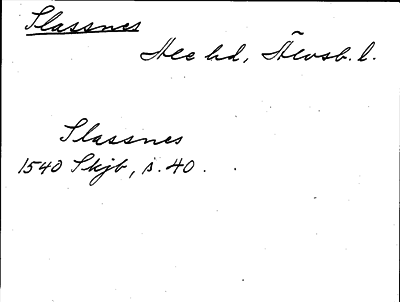 Slassnes
Ale hd, Älvsb. l.
Slassnes
1540 Skjb, s. 40.